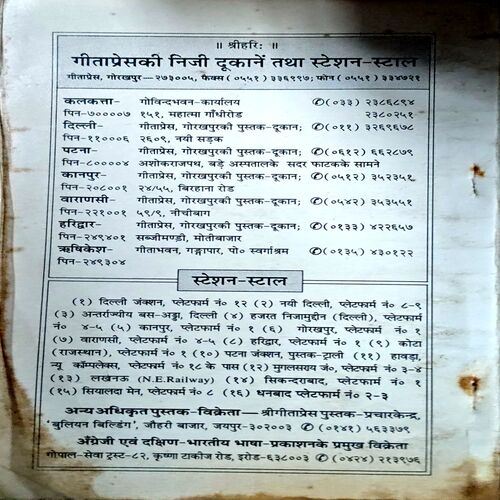 ॥ श्रीहरिः ॥
गीताप्रेसकी निजी दूकानें तथा स्टेशन-स्टाल
गीताप्रेस, गोरखपुर—२७३००५, फैक्स (०५५१) ३३६९९७; फोन (०५५१) ३३४७२१
कलकत्ता- गोविन्दभवन-कार्यालय ✆(०३३) २३८६८९४
पिन-७००००७ १५१, महात्मा गाँधीरोड २३८०२५१
दिल्ली- गीताप्रेस, गोरखपुरकी पुस्तक-दूकान; ✆(०११) ३२६९६७८
पिन-११०००६ २६०९, नयी सड़क
पटना- गीताप्रेस, गोरखपुरकी पुस्तक-दूकान; ✆(०६१२) ६६२८७९
पिन-८००००४ अशोकराजपथ, बड़े अस्पतालके सदर फाटकके सामने
कानपुर- गीताप्रेस, गोरखपुरकी पुस्तक-दूकान; ✆(०५१२) ३५२३५१
पिन-२०८००१ २४/५५, बिरहाना रोड
वाराणसी- गीताप्रेस, गोरखपुरकी पुस्तक-दूकान; ✆(०५४२) ३५३५५१
पिन-२२१००१ ५९/९, नीचीबाग
हरिद्वार- गीताप्रेस, गोरखपुरकी पुस्तक-दूकान; ✆(०१३३) ४२२६५७
पिन-२४९४०१ सब्जीमण्डी, मोतीबाजार
ऋषिकेश- गीताभवन, गङ्गापार, पो० स्वर्गाश्रम ✆(०१३५) ४३०१२२
पिन-२४९३०४
स्टेशन-स्टाल
(१) दिल्ली जंक्शन, प्लेटफार्म नं० १२ (२) नयी दिल्ली, प्लेटफार्म नं० ८-९
(३) अन्तर्राज्यीय बस-अड्डा, दिल्ली (४) हजरत निजामुद्दीन (दिल्ली), प्लेटफार्म
नं० ४-५ (५) कानपुर, प्लेटफार्म नं० १ (६) गोरखपुर, प्लेटफार्म नं० १
(७) वाराणसी, प्लेटफार्म नं० ४-५ (८) हरिद्वार, प्लेटफार्म नं० १ (९) कोटा
(राजस्थान), प्लेटफार्म नं० १ (१०) पटना जंक्शन, पुस्तक-ट्राली (११) हावड़ा,
न्यू कॉम्पलेक्स, प्लेटफार्म नं० १८ के पास (१२) मुगलसराय जं०, प्लेटफार्म नं० ३-४
(१३) लखनऊ (N.E.Railway) (१४) सिकन्दराबाद, प्लेटफार्म नं० १
(१५) सियालदा मेन, प्लेटफार्म नं० ८ (१६) धनबाद प्लेटफार्म नं० २-३
अन्य अधिकृत पुस्तक-विक्रेता—श्रीगीताप्रेस पुस्तक-प्रचारकेन्द्र,
'बुलियन बिल्डिंग', जौहरी बाजार, जयपुर-३०२००३ ✆ (०१४१) ५६३३७९
अँग्रेजी एवं दक्षिण-भारतीय भाषा-प्रकाशनके प्रमुख विक्रेता
गोपाल-सेवा ट्रस्ट-८२, कृष्णा टाकीज रोड, इरोड-६३८००३ ✆(०४२४) २१३९७६